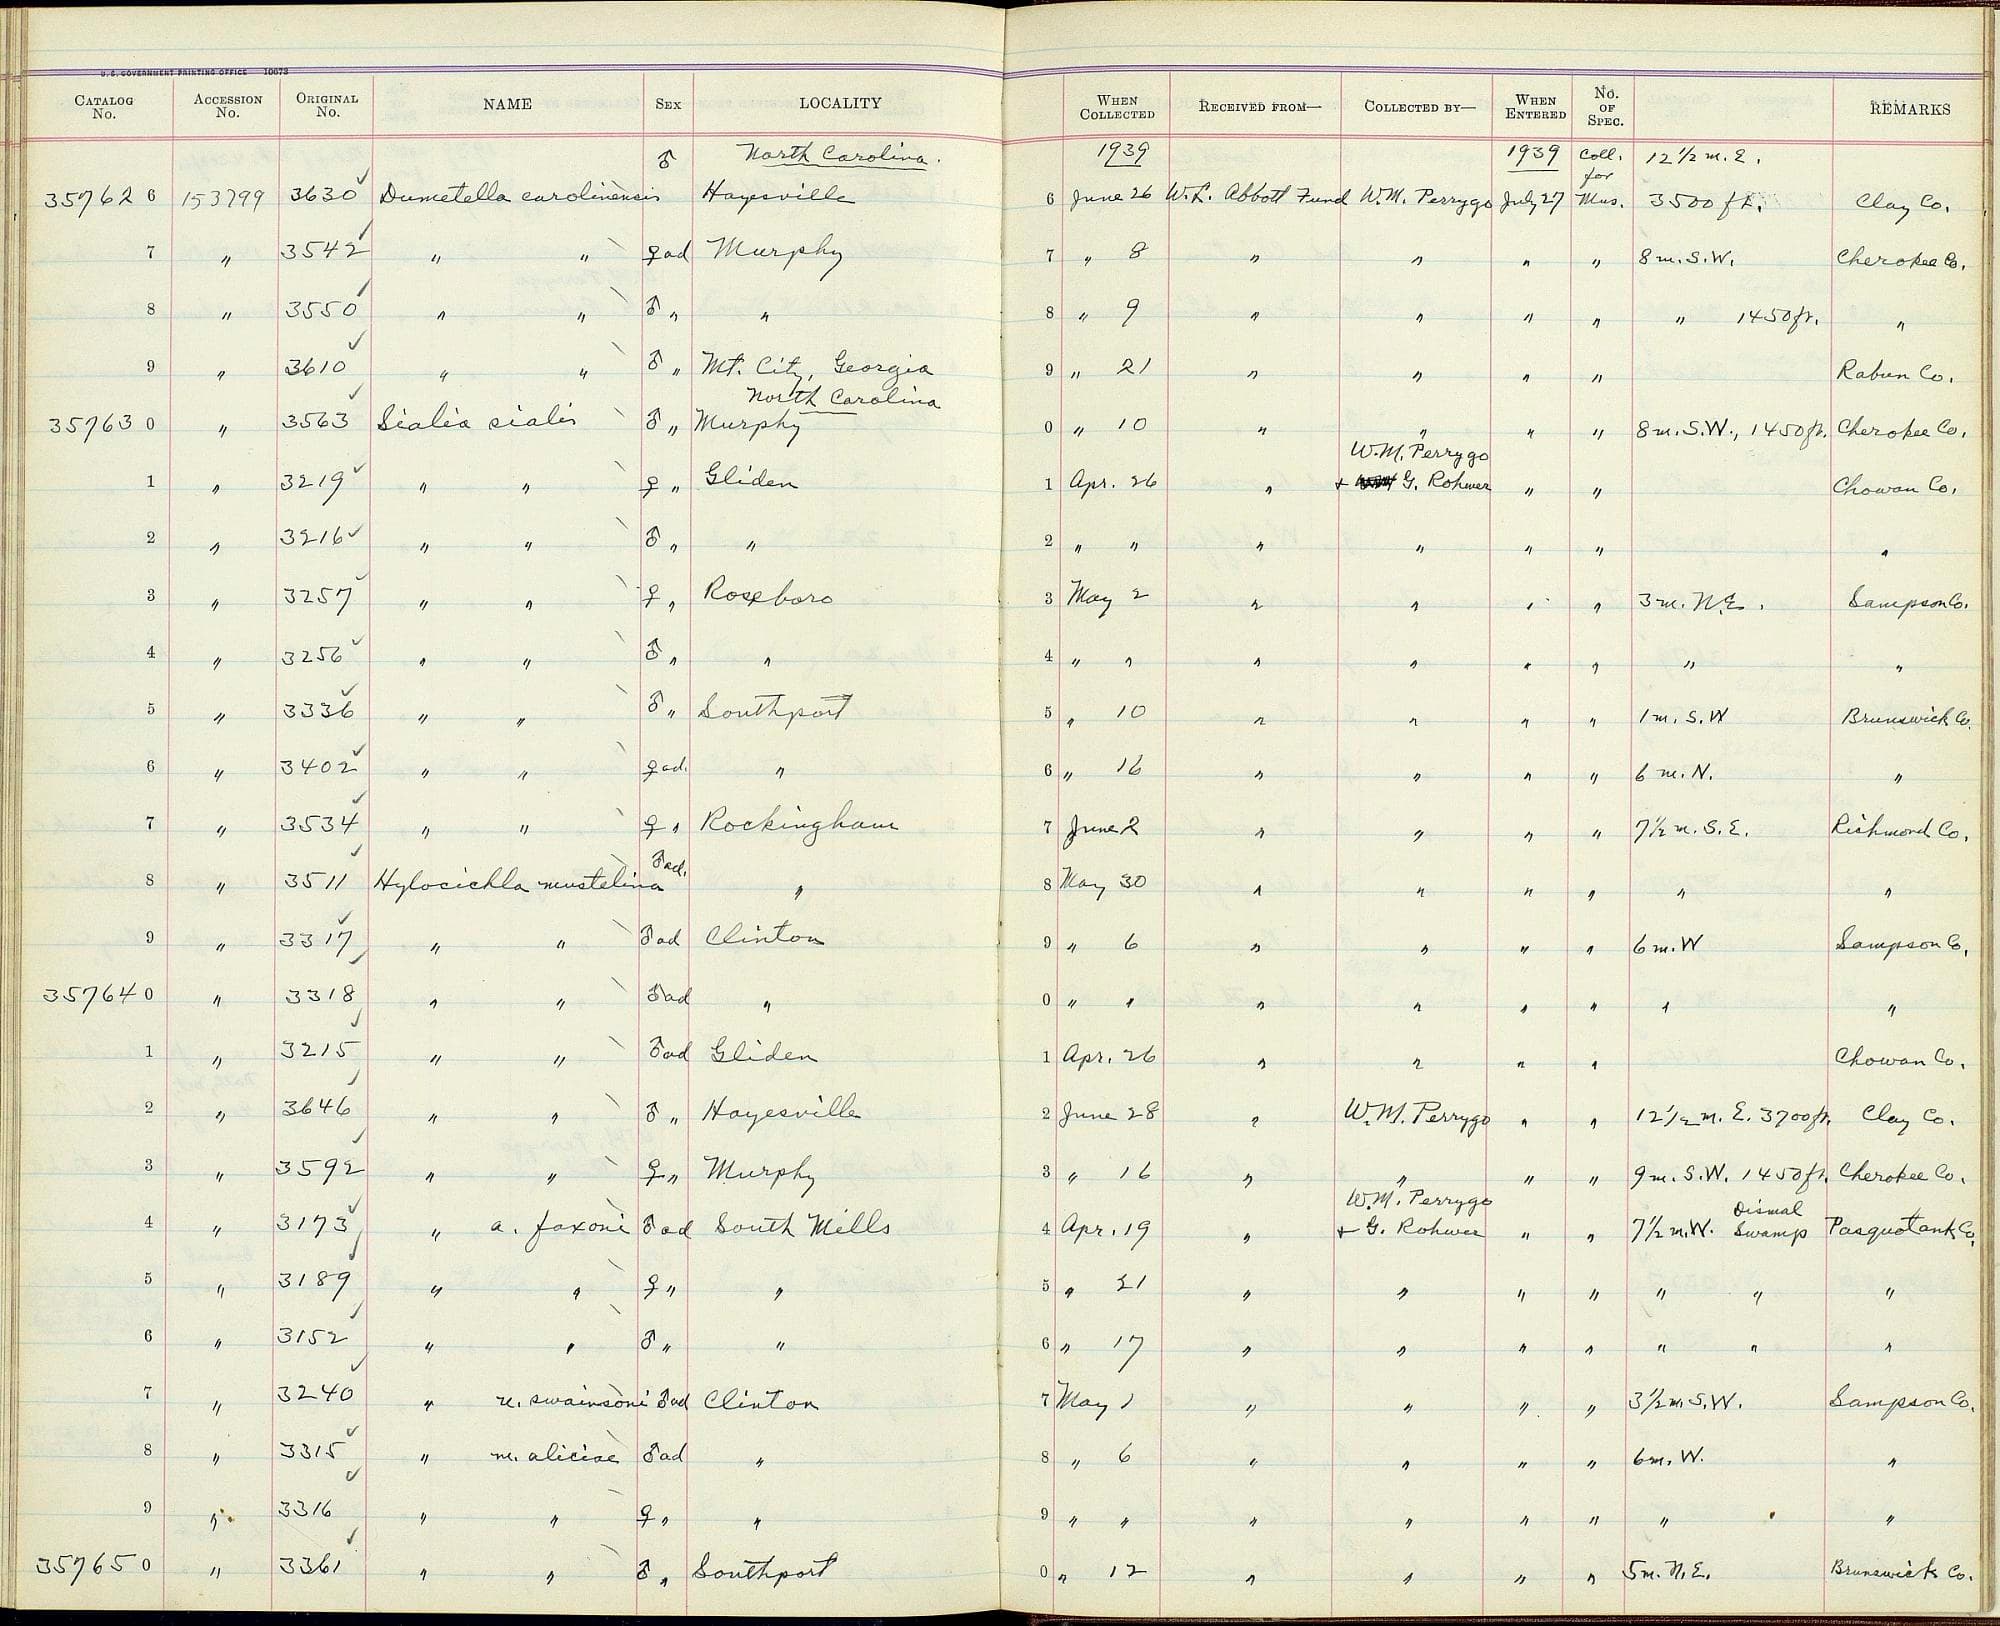 U.S. GOVERNMENT PRINTING OFFICE 10673
CATALOG No. ACCESSION No. ORIGINAL No. NAME SEX LOCALITY WHEN COLLECTED RECEIVED FROM— COLLECTED BY— WHEN ENTERED No. OF SPEC. REMARKS
♂ North Carolina. 1939 1939 Coll. for 12 ½ m. E.
35762 6 153799 3630 ✓ Dumetella carolinensis Hayesville 6 June 26 W.L. Abbott Fund W.M. Perrygo July 27 Mus. 3500 ft. Clay Co.
7 " 3542 ✓ " " ♀ ad Murphy 7 " 8 " " " " 8 m. S.W. Cherokee Co.
8 " 3550 ✓ " " ♂ " " 8 " 9 " " " " " 1450 ft. "
9 " 3610 ✓ " " ♂ " Mt. City, Georgia 9 " 21 " " " " Rabun Co.
North Carolina
35763 0 " 3563 ✓ Sialia sialis ♂ " Murphy 0 " 10 " " " " 8 m. S.W., 1450 ft. Cherokee Co.
W.M. Perrygo
1 " 3219 ✓ " " ♀ " Gliden 1 Apr. 26 " + G. Rohwer " " Chowan Co.
2 " 3216 ✓ " " ♂ " " 2 " " " " " " "
3 " 3257 ✓ " " ♀ " Roseboro 3 May 2 " " " " 3 m. N.E. Sampson Co.
4 " 3256 ✓ " " ♂ " " 4 " " " " " " " "
5 " 3336 ✓ " " ♂ " Southport 5 " 10 " " " " 1 m. S.W Brunswick Co.
6 " 3402 ✓ " " ♀ ad. " 6 " 16 " " " " 6 m. N. "
7 " 3534 ✓ " " ♀ " Rockingham 7 June 2 " " " " 7½ m. S.E. Richmond Co.
8 " 3511 ✓ Hylocichla mustelina ♂ ad. " 8 May 30 " " " " " "
9 " 3317 ✓ " " ♂ ad Clinton 9 " 6 " " " " 6 m. W Sampson Co.
35764 0 " 3318 ✓ " " ♂ ad " 0 " " " " " " " "
1 " 3215 ✓ " " ♂ ad Gliden 1 Apr. 26 " " " " Chowan Co.
2 " 3646 ✓ " " ♂ " Hayesville 2 June 28 " W.M. Perrygo " " 12 ½ m. E. 3700 ft. Clay Co.
3 " 3592 ✓ " " ♀ " Murphy 3 " 16 " " " " 9 m. S.W. 1450 ft. Cherokee Co.
W.M. Perrygo Dismal
4 " 3173 ✓ " a. faxoni ♂ ad South Mills 4 Apr. 19 " + G. Rohwer " " 7½ m. W. Swamp Pasquotank Co.
5 " 3189 ✓ " " ♀ " " 5 " 21 " " " " " " "
6 " 3152 ✓ " " ♂ " " 6 " 17 " " " " " " "
7 " 3240 ✓ " u. swainsoni ♂ ad Clinton 7 May 1 " " " " 3½ m. S.W. Sampson Co.
8 " 3315 ✓ " m. aliciae ♂ ad " 8 " 6 " " " " 6 m. W. "
9 " 3316 ✓ " " ♀ " " 9 " " " " " " " "
35765 0 " 3361 ✓ " " ♂ " Southport 0 " 12 " " " " 5 m. N.E. Brunswick Co.